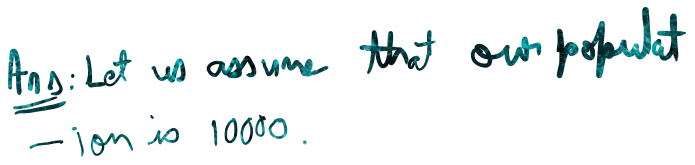 Ans: Let us assume that our populat
-ion is 10000.